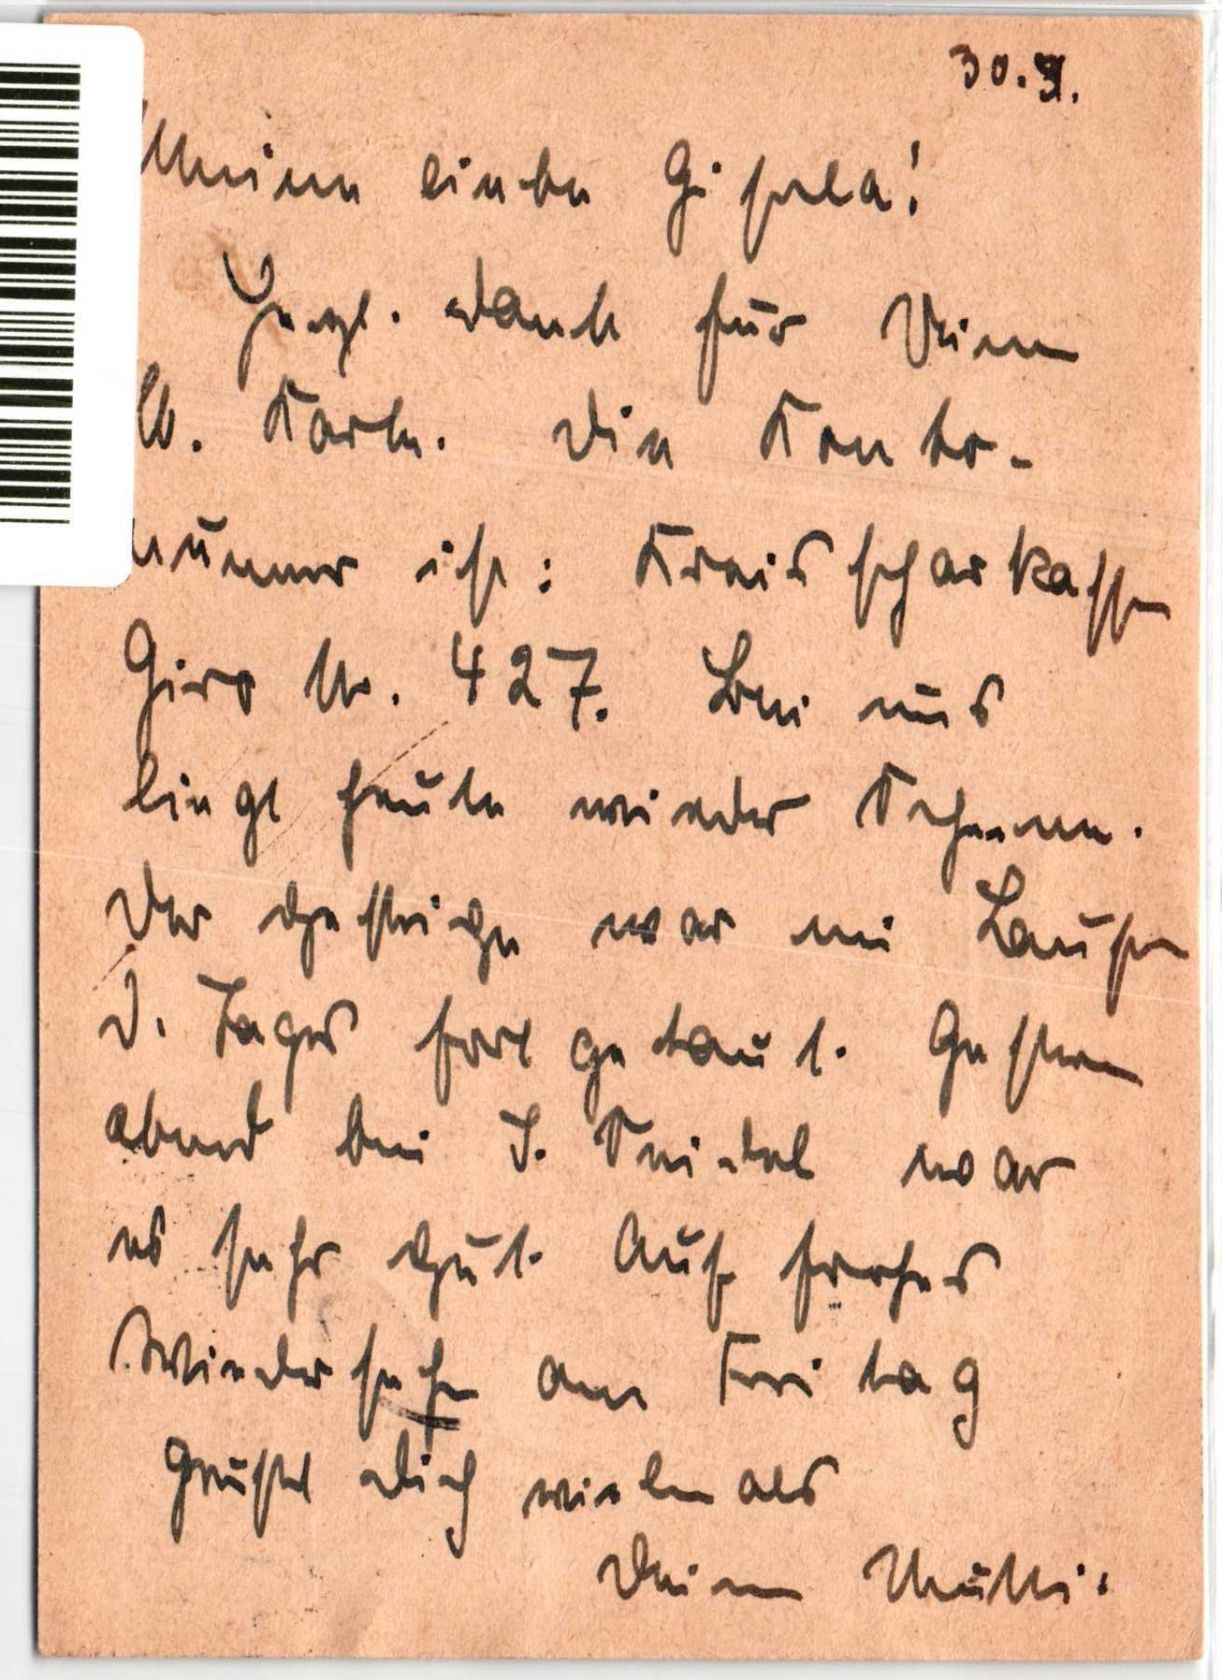 30.1.
Meine liebe Gisela!
Herzl. Dank für Deine
lb. Karte. Die Konto-
nummer ist: Kreissparkasse
Giro Nr. 427. Bei uns
liegt heute wieder Schnee.
Der gestrige war im Laufe
d. Tages fortgetaut. Gestern
abend bei J. Seidel war
es sehr gut. Auf frohes
Wiedersehn am Freitag
grüßt Dich vielmals
Deine Mutti.